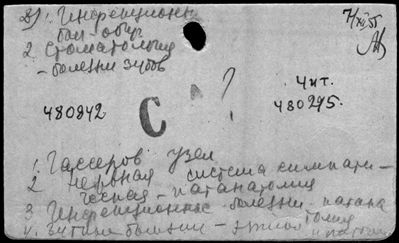 8) 1. Инфекционн 7/XII 55
бол - общ.
2. Стоматология
- болезни зубов
?
Чит.
480842 480295.
С
1. Гассеров узел
2 Нервная система симпати-
ческая - патанатомия
3 Инфекционные болезни - патана
томия
болезни -